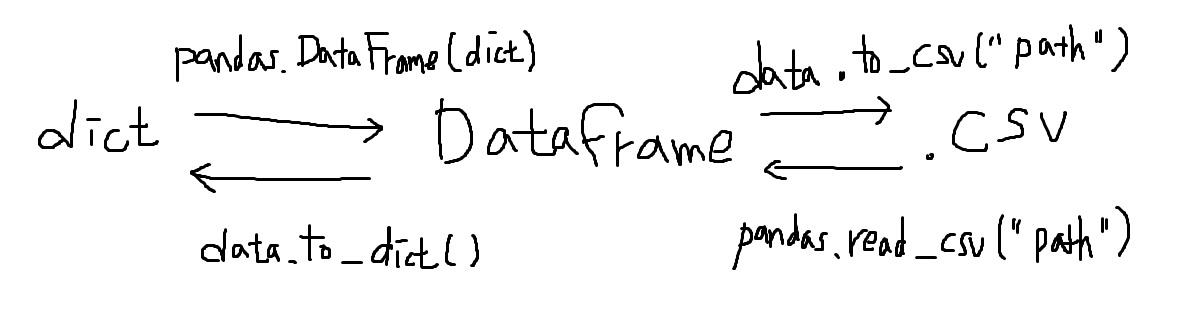 pandas.DataFrame(dict) data.to_csv("path")
dict DataFrame .CSV
data.to_dict() pandas.read_csv("path")